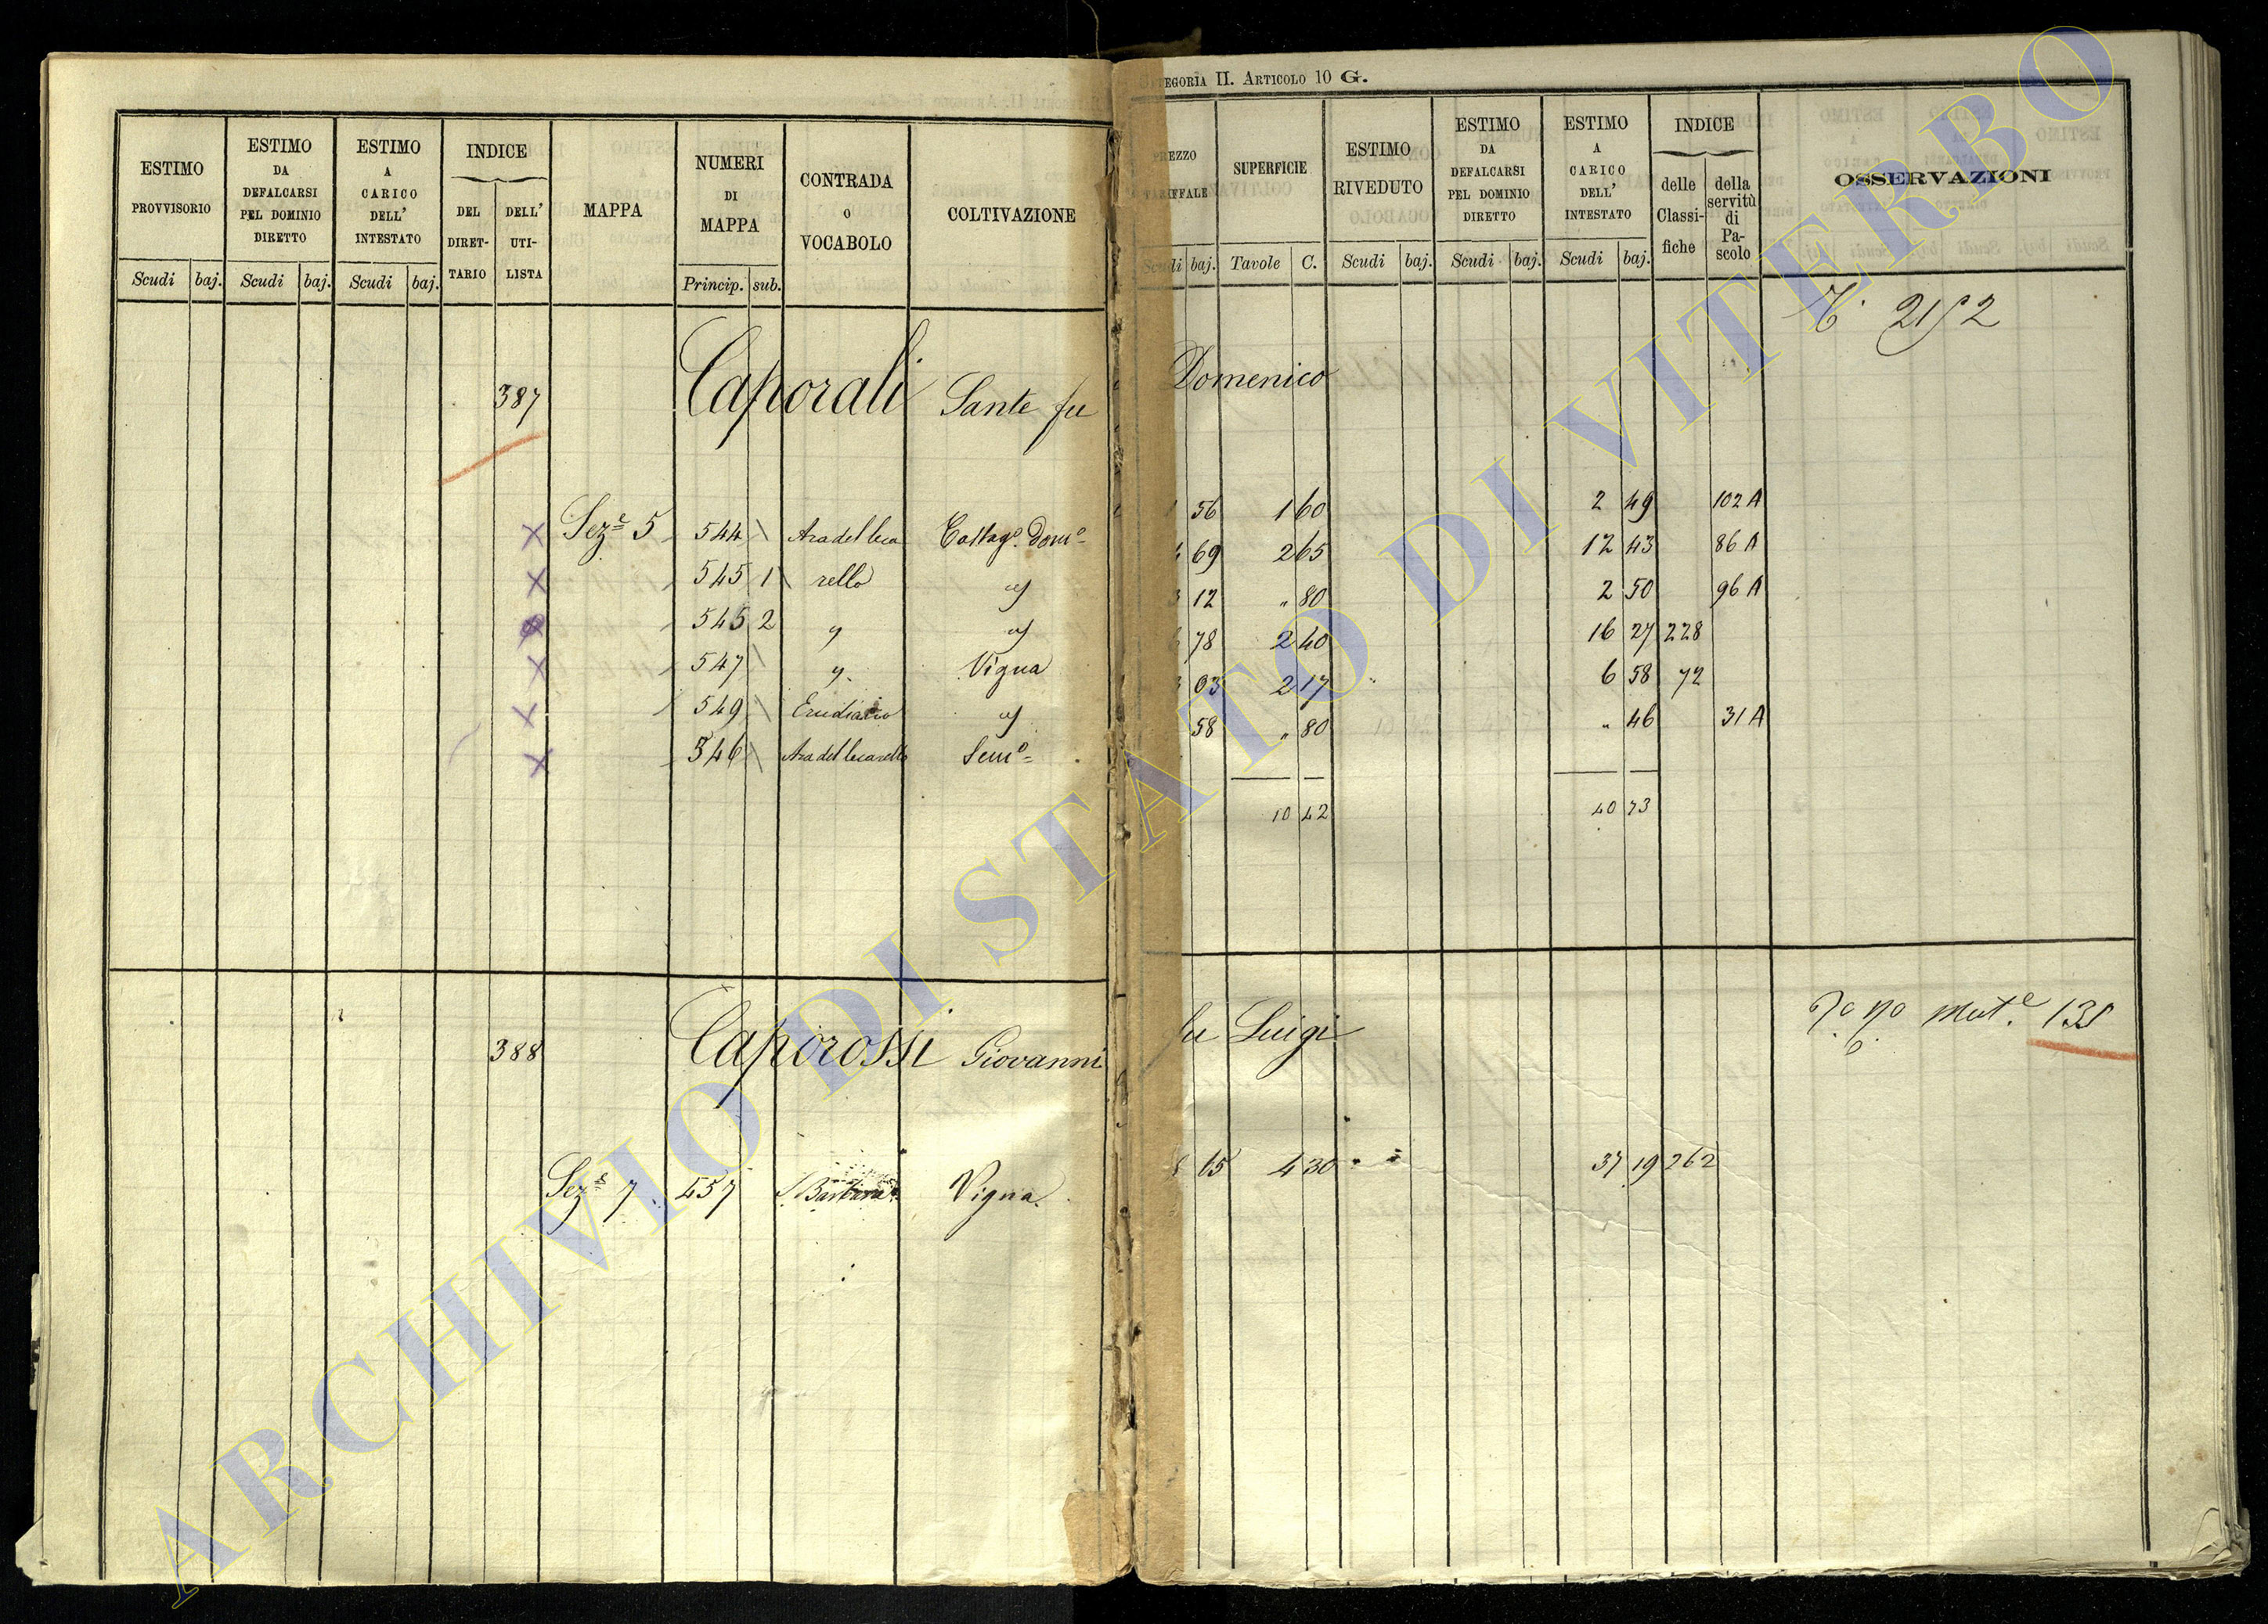 CATEGORIA II. ARTICOLO 10 G.
ESTIMO PROVVISORIO Scudi baj.
ESTIMO DA DEFALCARSI PEL DOMINIO DIRETTO Scudi baj.
ESTIMO A CARICO DELL' INTESTATO Scudi baj.
INDICE DEL DIRETTARIO DELL' UTILISTA
MAPPA
NUMERI DI MAPPA Princip. sub.
CONTRADA O VOCABOLO
COLTIVAZIONE
PREZZO TARIFFALE Scudi baj.
SUPERFICIE Tavole C.
ESTIMO RIVEDUTO Scudi baj.
ESTIMO DA DEFALCARSI PEL DOMINIO DIRETTO Scudi baj.
ESTIMO A CARICO DELL' INTESTATO Scudi baj.
INDICE delle Classifiche della servitù di Pascolo
OSSERVAZIONI
387 Caporali Sante fu Domenico
Sez.e 5 544 Ara del leca Castag.o Dom.o 56 1 60 2 49 102 A
545 1 rello 69 2 65 12 43 86 A
545 2 12 " 80 2 50 96 A
547 Vigna 78 2 40 16 27 228
549 03 2 17 6 58 72
546 Ara del lecarello Sem.o 58 " 80 " 46 31 A
10 42 40 73
388 Caporossi Giovanni fu Luigi Mut.e
Sez.e 7 457 S. Barbara Vigna 65 4 30 37 19 262
ARCHIVIO DI STATO DI VITERBO